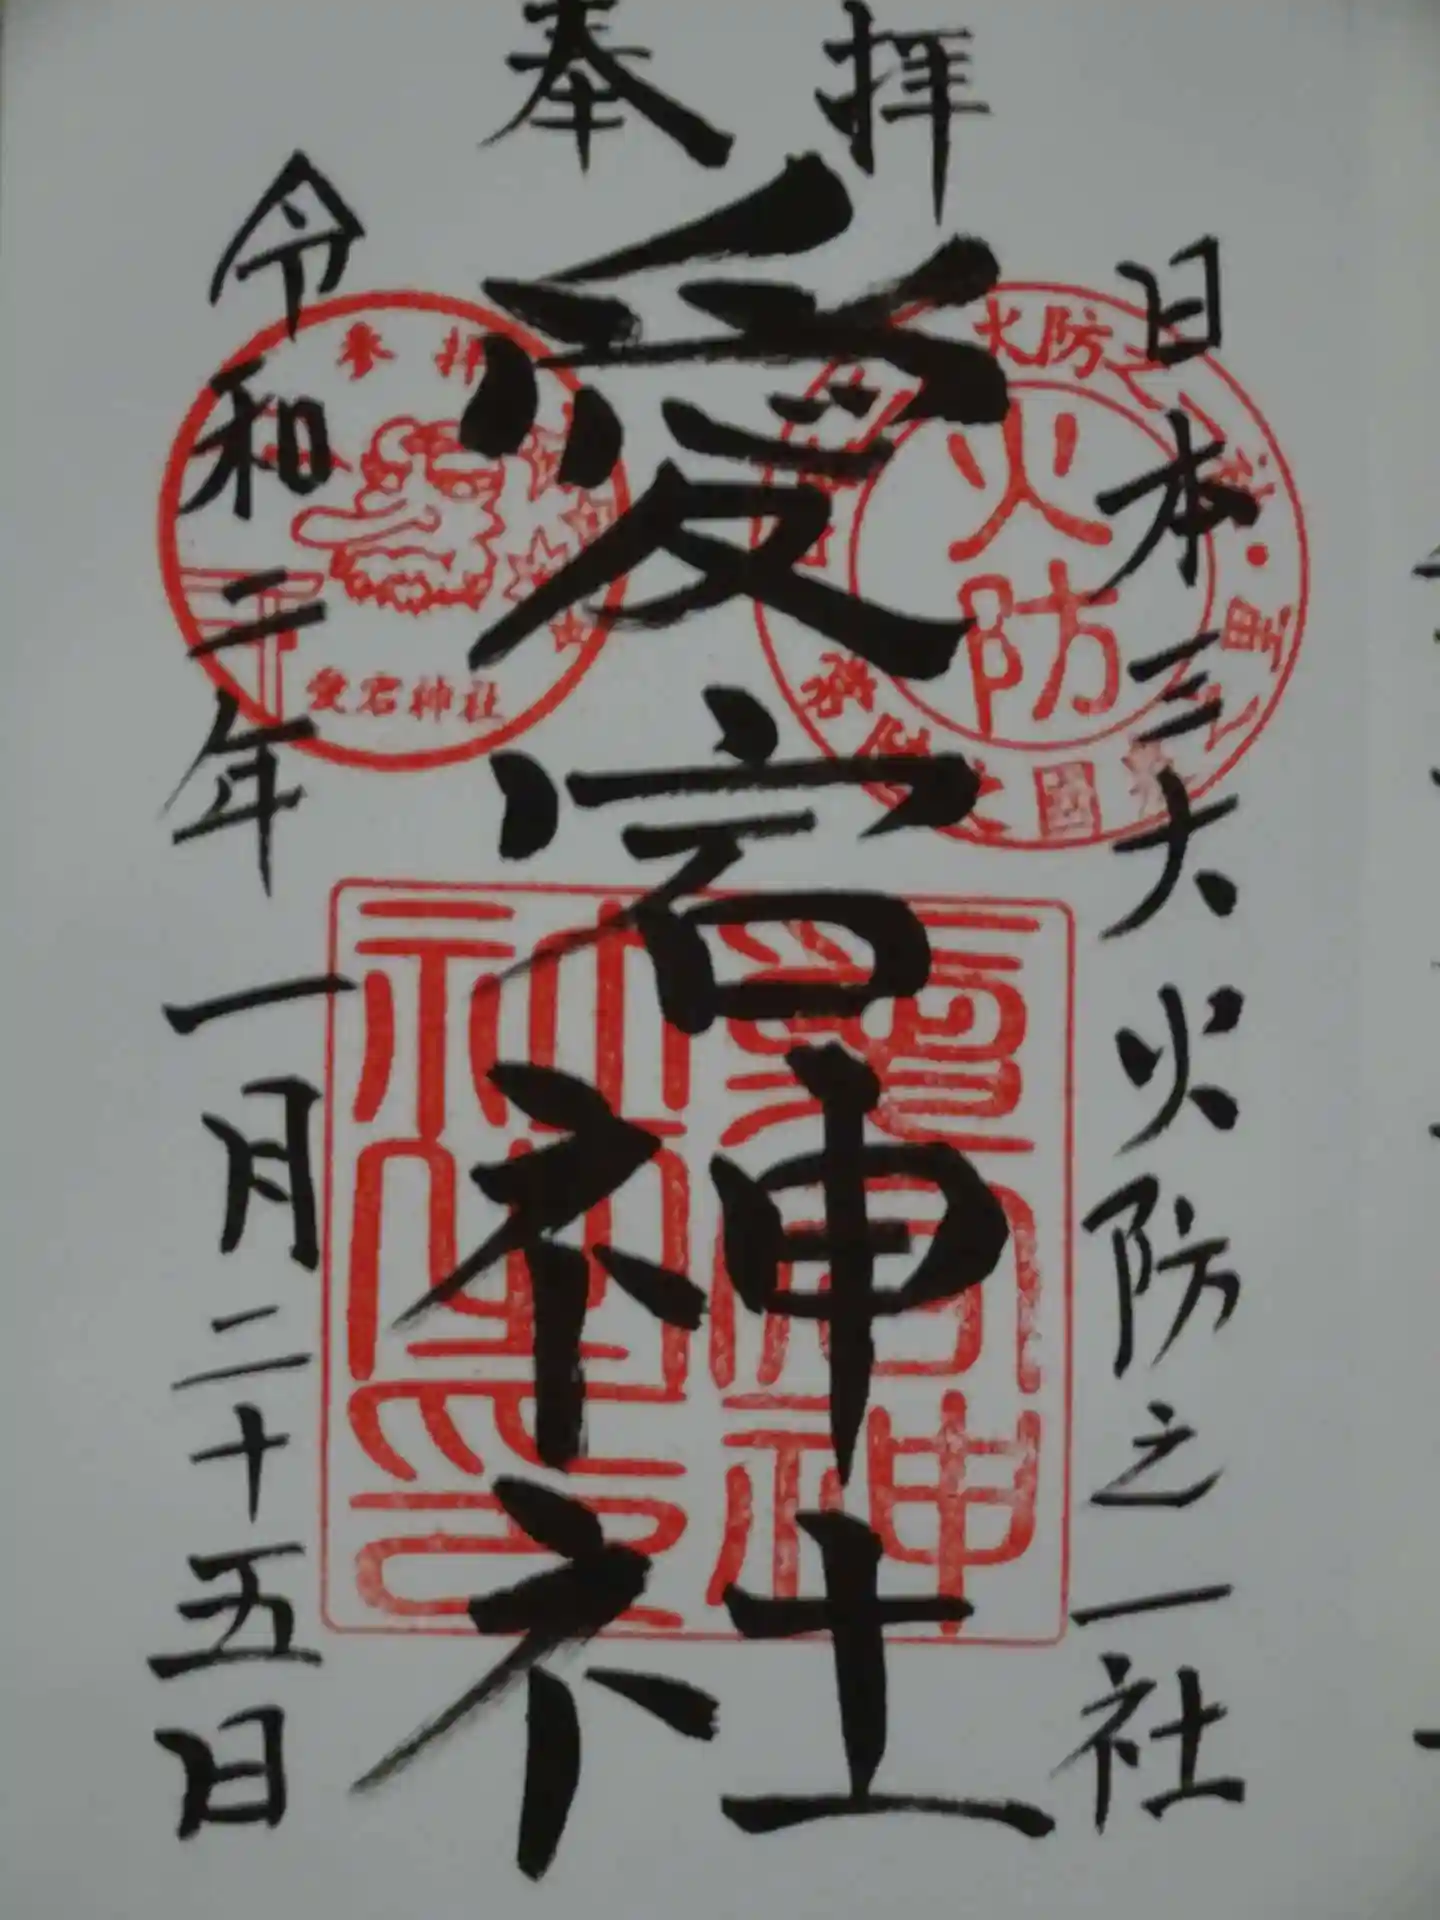 奉拝
日本三大火防之一社
愛宕神社
令和二年一月二十五日
参拝
愛宕神社
火防
愛宕神社印